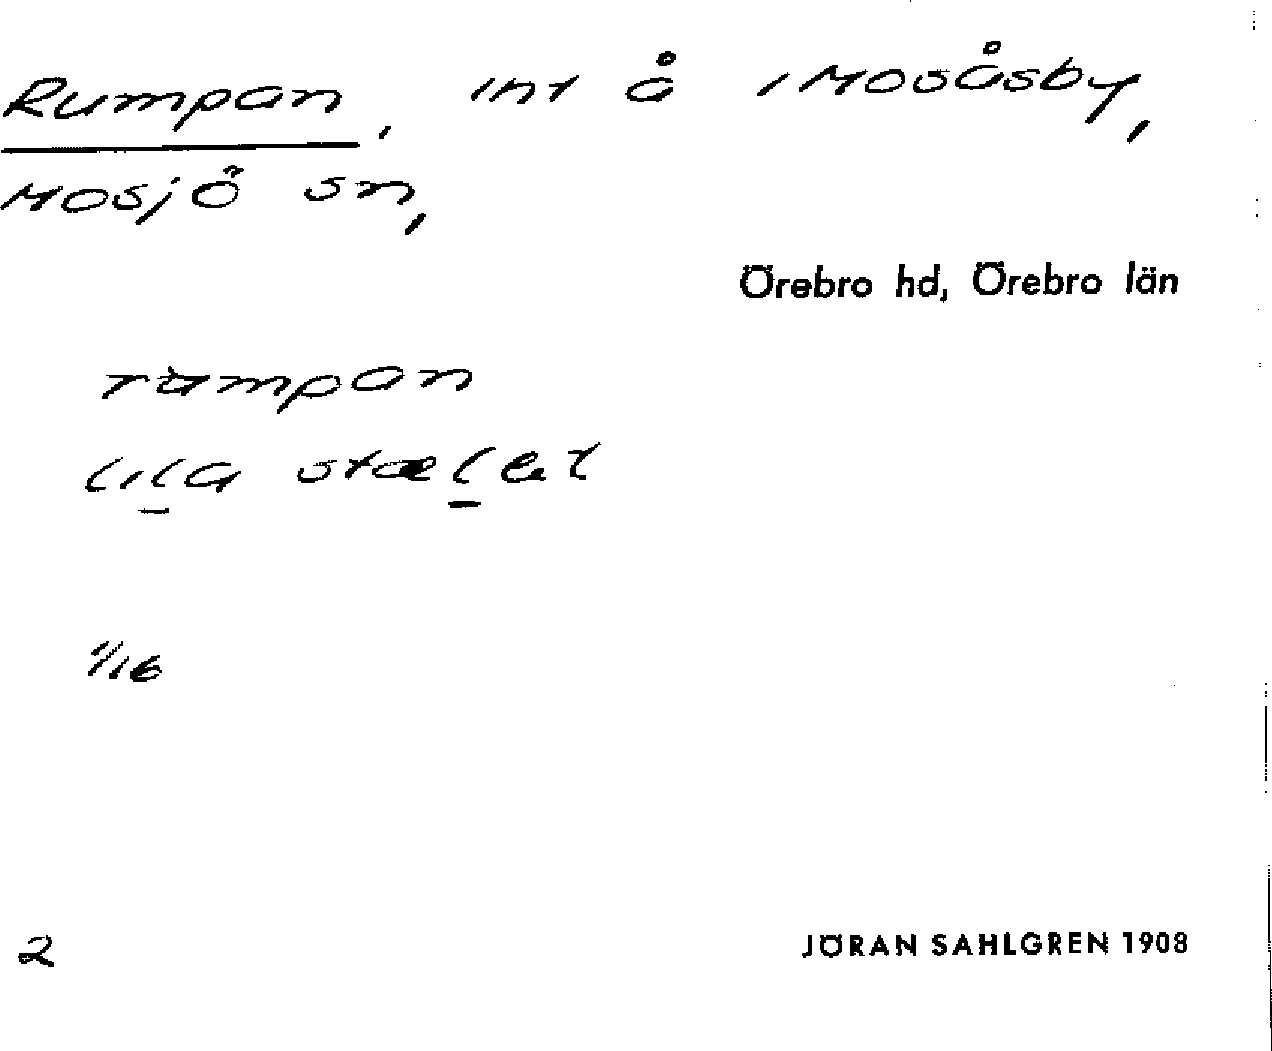 Rumpan, int å i Mosåsby,
Mosjö sn,
Örebro hd, Örebro län
rumpan
lila stælet
1/16
2
JÖRAN SAHLGREN 1908